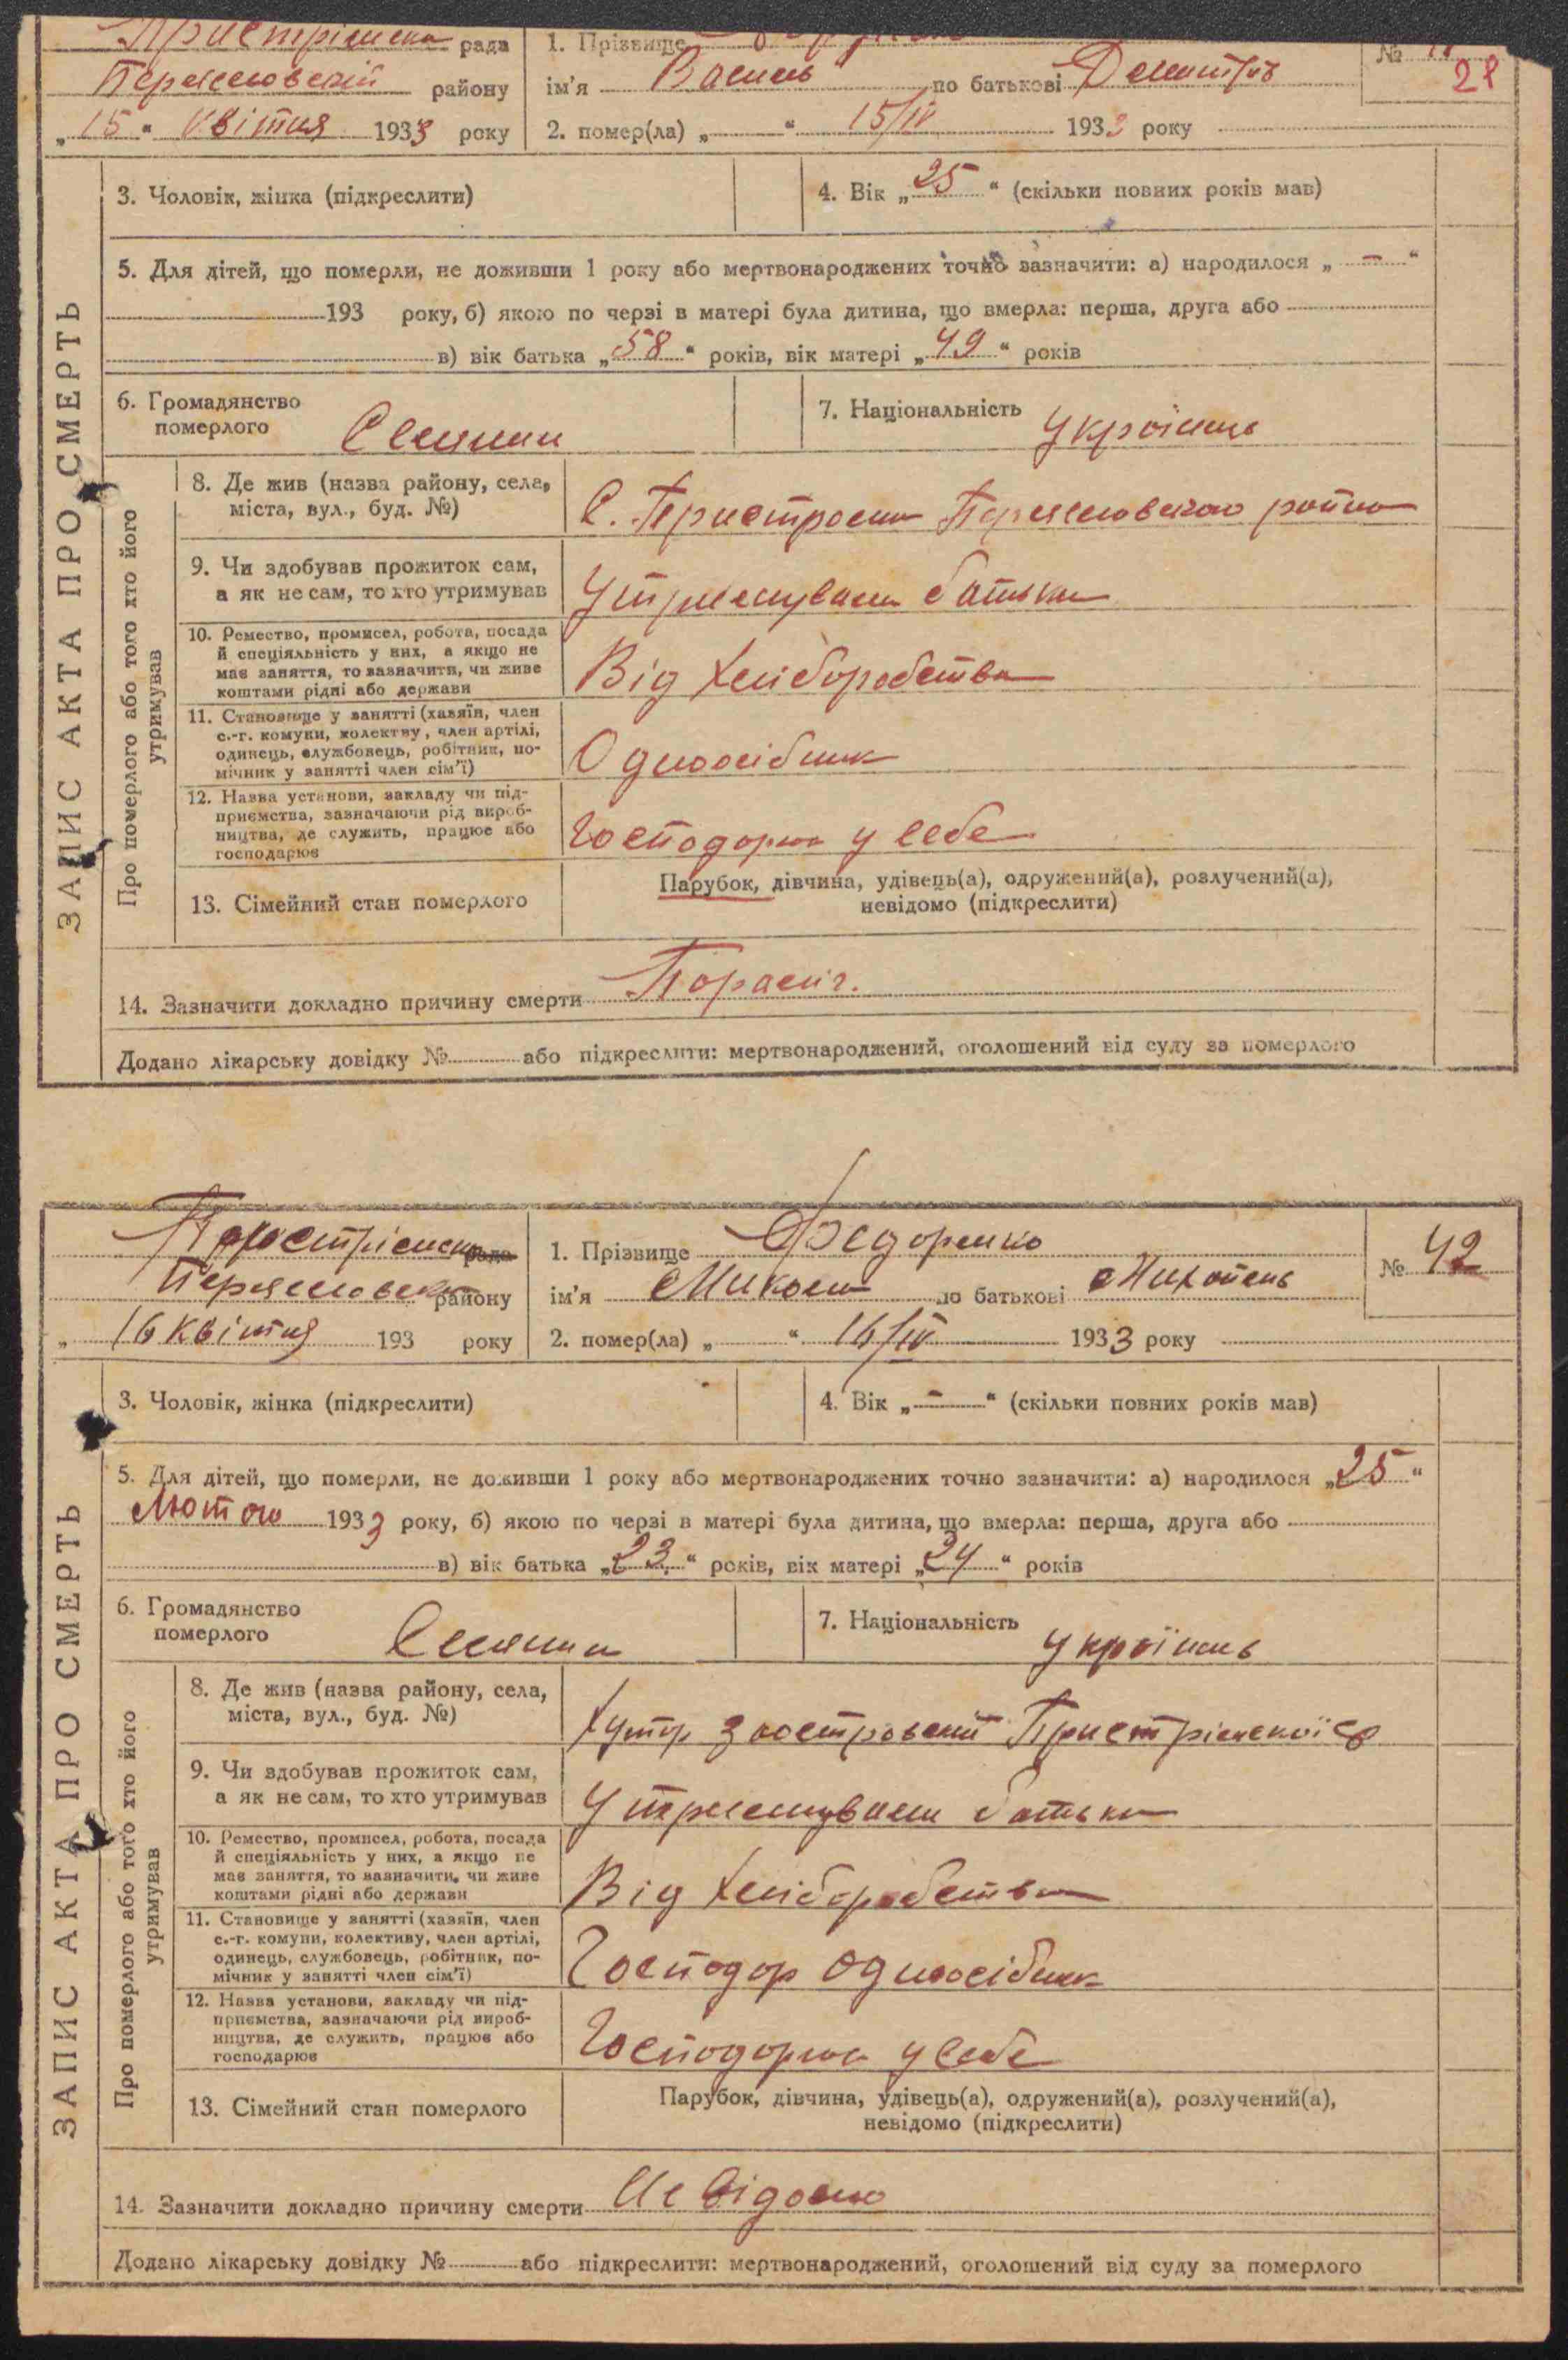 Пристрімска рада
1. Прізвище
№
28
Переяславській району
ім'я Василь по батькові
„15“ квітня 1933 року
2. помер(ла) „ “ 15/IV 1933 року
ЗАПИС АКТА ПРО СМЕРТЬ
3. Чоловік, жінка (підкреслити)
4. Вік „25“ (скільки повних років мав)
5. Для дітей, що померли, не доживши 1 року або мертвонароджених точно зазначити: а) народилося „ — “
193 року, б) якою по черзі в матері була дитина, що вмерла: перша, друга або
в) вік батька „58“ років, вік матері „49“ років
6. Громадянство
померлого
Селянин
7. Національність
Українець
Про померлого або того хто його
утримував
8. Де жив (назва району, села,
міста, вул., буд. №)
С. Пристроми Переяславського району
9. Чи здобував прожиток сам,
а як не сам, то хто утримував
Утримували батьки
10. Ремество, промисел, робота, посада
й спеціяльність у них, а якщо не
має заняття, то зазначити, чи живе
коштами рідні або держави
Від хліборобства
11. Становище у занятті (хазяїн, член
с.-г. комуни, колективу, член артілі,
одинець, службовець, робітник, по-
мічник у занятті член сім'ї)
Одноосібник
12. Назва установи, закладу чи під-
приємства, зазначаючи рід вироб-
ництва, де служить, працює або
господарює
Господорює у себе
13. Сімейний стан померлого
Парубок, дівчина, удівець(а), одружений(а), розлучений(а),
невідомо (підкреслити)
14. Зазначити докладно причину смерти
Додано лікарську довідку № або підкреслити: мертвонароджений, оголошений від суду за померлого
рада
1. Прізвище Федоренко
№ 42
району
ім'я Микола по батькові
„ 16 Квітня 193 року
2. помер(ла) „ “ 16/IV 1933 року
ЗАПИС АКТА ПРО СМЕРТЬ
3. Чоловік, жінка (підкреслити)
4. Вік „ — “ (скільки повних років мав)
5. Для дітей, що померли, не доживши 1 року або мертвонароджених точно зазначити: а) народилося „25“
Лютого 1933 року, б) якою по черзі в матері була дитина, що вмерла: перша, друга або
в) вік батька „23“ років, вік матері „24“ років
6. Громадянство
померлого
Селянин
7. Національність
Українець
Про померлого або того хто його
утримував
8. Де жив (назва району, села,
міста, вул., буд. №)
Хутор
9. Чи здобував прожиток сам,
а як не сам, то хто утримував
Утримували батьки
10. Ремество, промисел, робота, посада
й спеціяльність у них, а якщо не
має заняття, то зазначити, чи живе
коштами рідні або держави
Від хліборобства
11. Становище у занятті (хазяїн, член
с.-г. комуни, колективу, член артілі,
одинець, службовець, робітник, по-
мічник у занятті член сім'ї)
Господор одноосібник
12. Назва установи, закладу чи під-
приємства, зазначаючи рід вироб-
ництва, де служить, працює або
господарює
Господорює у себе
13. Сімейний стан померлого
Парубок, дівчина, удівець(а), одружений(а), розлучений(а),
невідомо (підкреслити)
14. Зазначити докладно причину смерти Не відомо
Додано лікарську довідку № або підкреслити: мертвонароджений, оголошений від суду за померлого